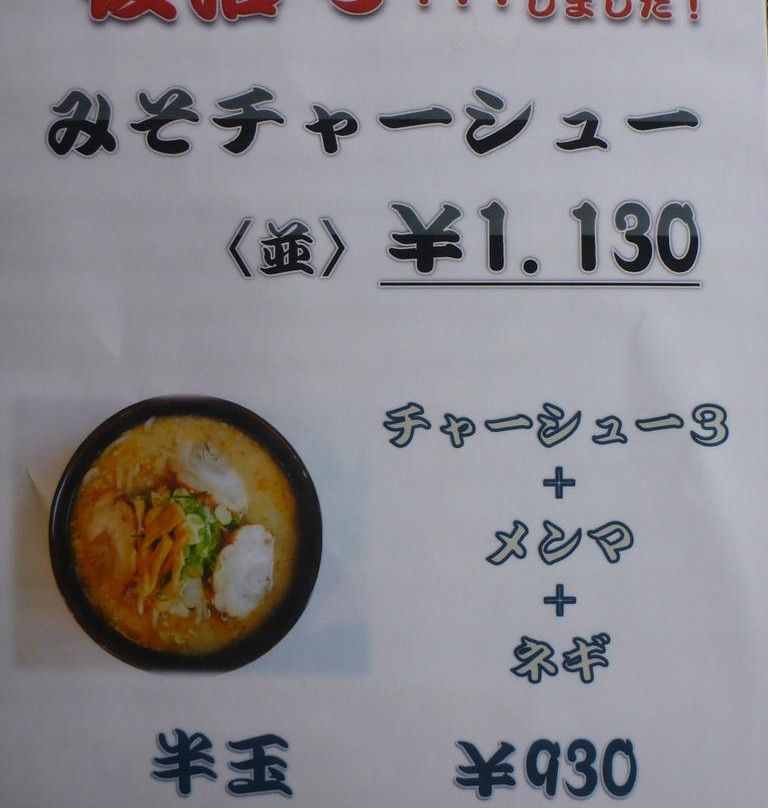 しました!
みそチャーシュー
〈並〉 ¥1.130
チャーシュー3
+
メンマ
+
ネギ
半玉 ¥930